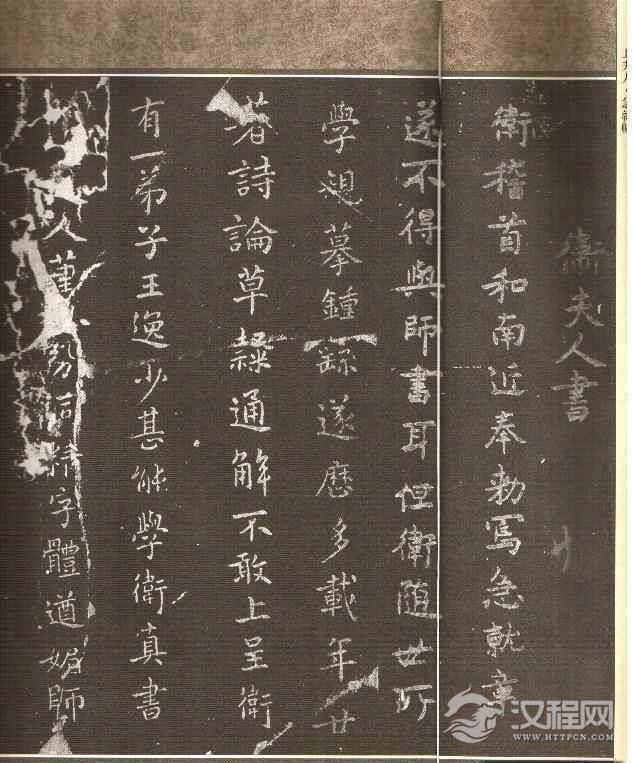 衛夫人書
衛稽首和南近奉勑寫急就章
遂不得與師書耳但衛隨世所
學規摹鍾繇遂歷多載年廿
著詩論草隸通解不敢上呈衛
有一弟子王逸少甚能學衛真書
人筆勢洞精字體遒媚師
汉程网
WWW.HTTPCN.COM